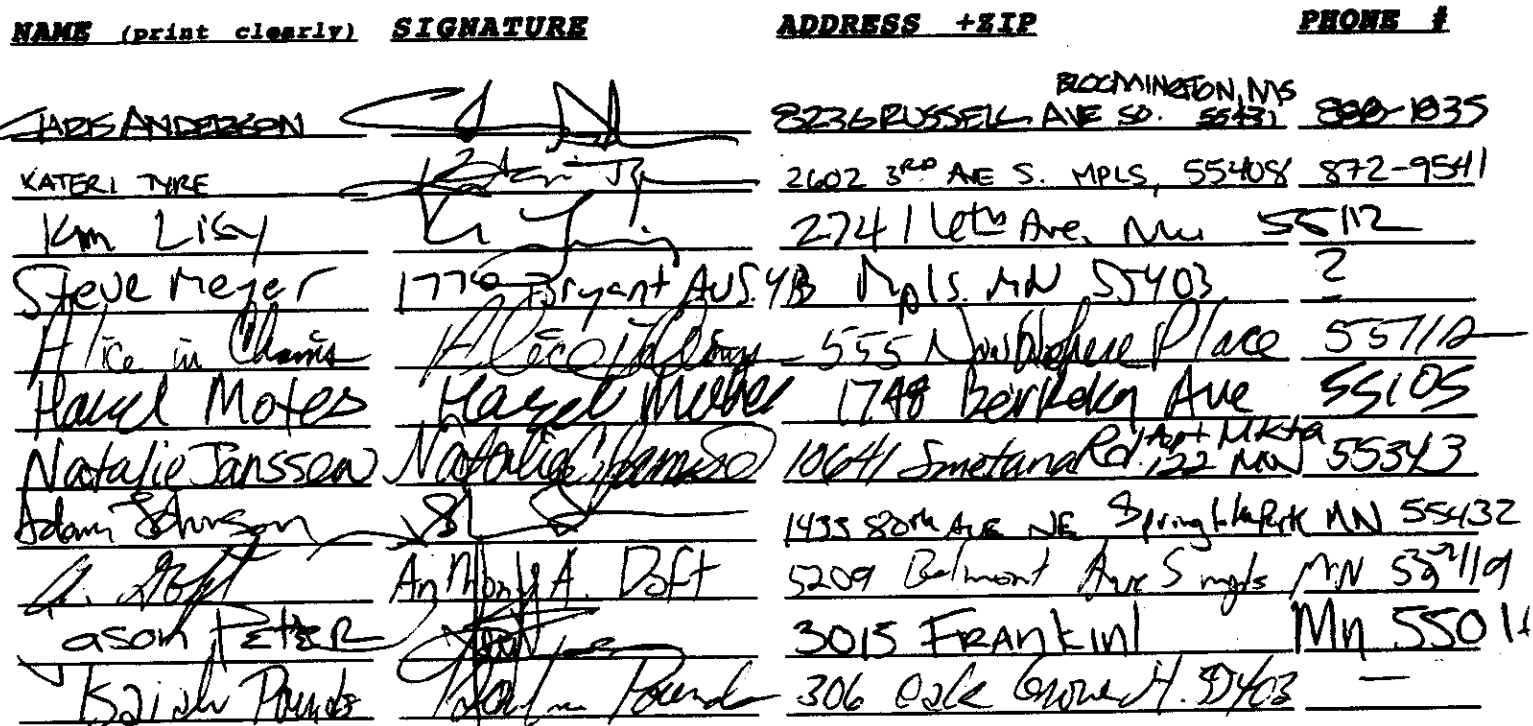 NAME (print clearly) SIGNATURE ADDRESS +ZIP PHONE #
CHRIS ANDERSON 8236 RUSSELL AVE SO. BLOOMINGTON, MS 55431 888-1835
KATERI TYRE 2602 3RD AVE S. MPLS, 55408 872-9541
Kim Ligy 2741 16th Ave. 55112
Steve Meyer 1770 Bryant Av S. 4B Mpls. MN 55403 ?
Alice in Chains 555 Place 55112
Hazel Motes Hazel Motes 1748 Berkeley Ave 55105
Natalie Janssen Natalie 10641 Smetana Rd. Apt 122 Mkta MN 55343
Adam Johnson 1435 80th Ave NE Spring Lake Park MN 55432
A. Doft Anthony A. Doft 5209 Belmont Ave S mpls MN
Jason PETER 3015 FRANKlinl Mn 5501
Isaiah Pounds Pounds 306 Oak Grove 55403 —